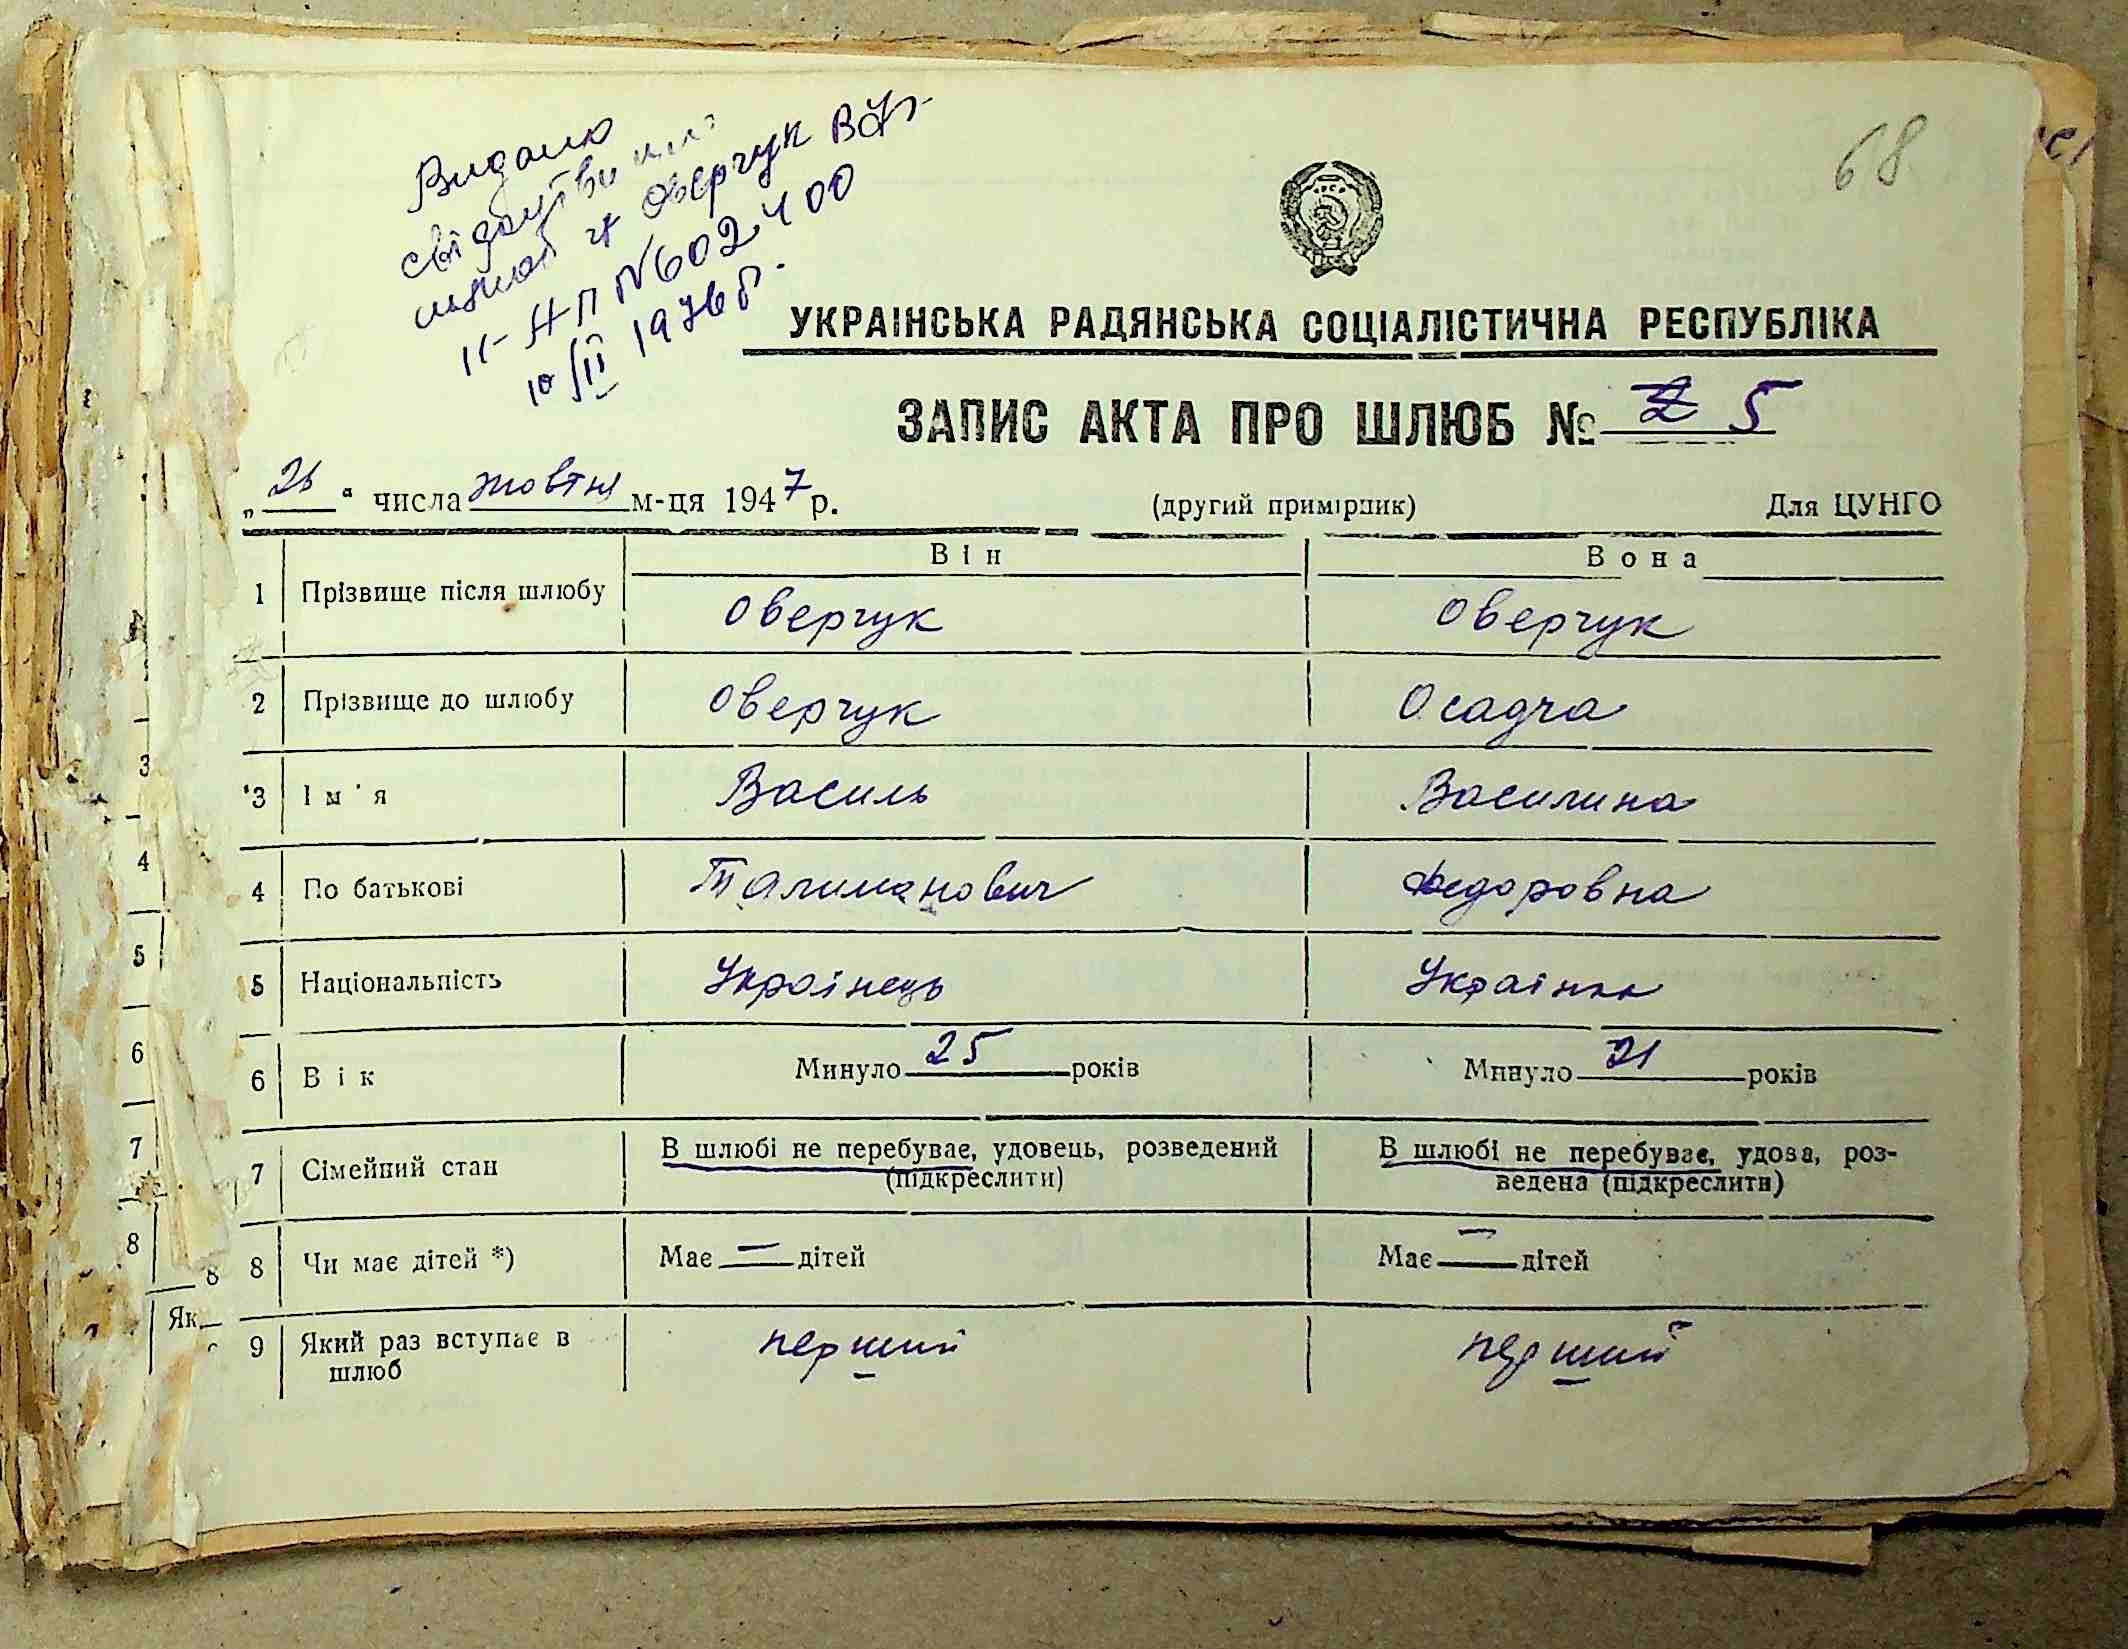 Видано
свідоцтво
шлюб гр Оверчук ВФ
II-АП №602400
10/II 1976р.
68
УКРАІНСЬКА РАДЯНСЬКА СОЦІАЛІСТИЧНА РЕСПУБЛІКА
ЗАПИС АКТА ПРО ШЛЮБ № 5
„26“ числа жовтня м-ця 1947 р. (другий примірник) Для ЦУНГО
Він Вона
1 Прізвище після шлюбу Оверчук Оверчук
2 Прізвище до шлюбу Оверчук Осадча
3 Ім'я Василь Василина
4 По батькові Талиманович Федоровна
5 Національність Українець Українка
6 Вік Минуло 25 років Минуло 21 років
7 Сімейний стан В шлюбі не перебуває, удовець, розведений В шлюбі не перебуває, удова, роз-
(підкреслити) ведена (підкреслити)
8 Чи має дітей *) Має — дітей Має — дітей
9 Який раз вступає в перший перший
шлюб
3
4
5
6
7
8
8
Як